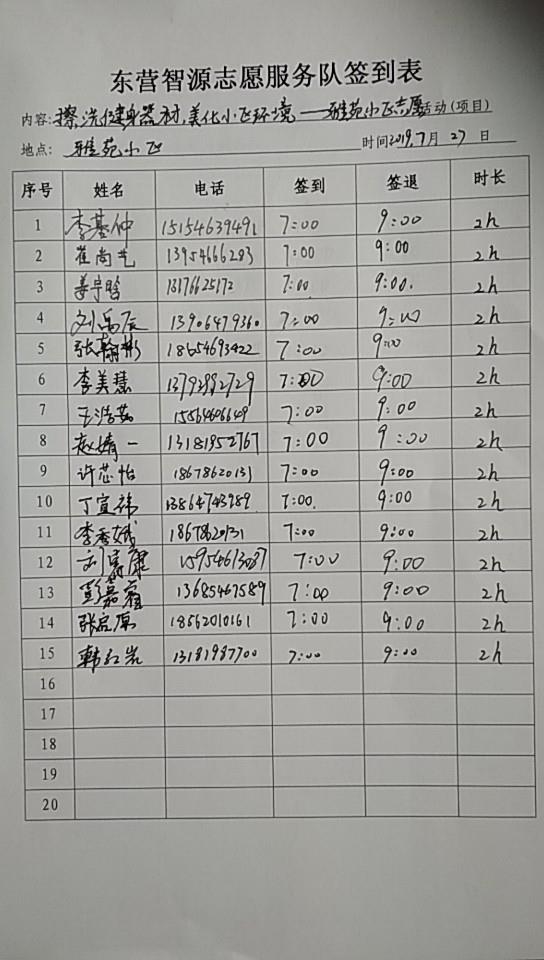 东营智源志愿服务队签到表
内容:擦洗健身器材,美化小区环境——雅苑小区志愿活动(项目)
地点: 雅苑小区 时间2019.7月27日
序号 姓名 电话 签到 签退 时长
1 李基仲 15154639491 7:00 9:00 2h
2 崔尚 13954666283 7:00 9:00 2h
3 姜宇晗 18176625172 7:00 9:00. 2h
4 刘禹辰 13906479360 7:00 9:00 2h
5 张翰彬 18654693422 7:00 9:00 2h
6 李美慧 13793992729 7:00 9:00 2h
7 王浩茹 7:00 9:00 2h
8 赵婧一 13181952767 7:00 9:00 2h
9 许芯怡 18678620131 7:00 9:00 2h
10 丁宣祎 13864743989 7:00. 9:00 2h
11 李秀娥 18678620131 7:00 9:00 2h
12 刘 康 7:00 9:00 2h
13 彭嘉 13685467589 7:00 9:00 2h
14 张启原 18562010161 7:00 9:00 2h
15 韩红岩 13181987700 7:00 9:00 2h
16
17
18
19
20